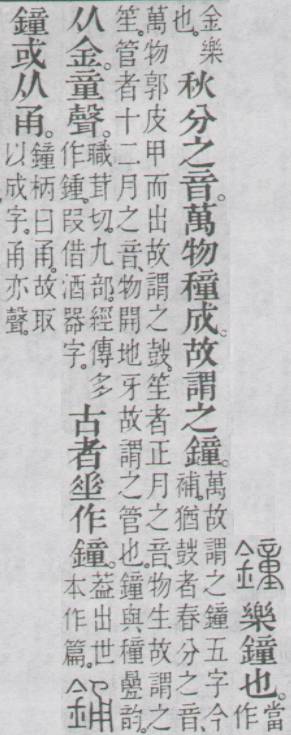 鐘 樂鐘也。當作
金樂也。秋分之音。萬物種成。故謂之鐘。萬故謂之鐘五字今補。猶鼓者春分之音、
萬物郭皮甲而出故謂之鼓。笙者正月之音。物生故謂之
笙。管者十二月之音、物開地牙故謂之管也。鐘與種疊韵。
从金。童聲。職茸切。九部。經傳多作鍾。叚借酒器字。古者垂作鐘。葢出世本作篇。銿
鐘或从甬。鐘柄曰甬。故取以成字。甬亦聲。